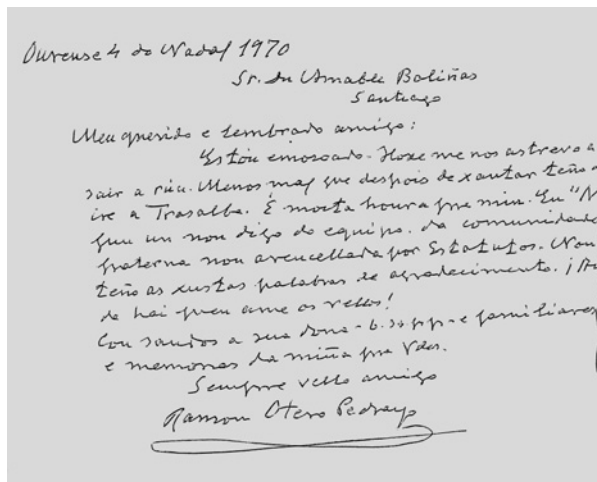 Ourense 4 do Nadal 1970
Sr. Dn Amable Boliñas
Santiago
Meu querido e lembrado amigo:
Estou emozoado. Hoxe me nos astrevo a
sair a rúa. Menos mal que despois de xantar teño
ire a Trasalba. É moita honra pra min. Eu
fun un non digo do equipo, da comunidade
fraterna non avencellada por Estatutos. Non
teño as xustas palabras de agradecimento. ¡
da hai quen ame os vellos!
Con saudos a sua dona - b. s. p. p. - e familiares
e memorias da miña pra Vdes.
Sempre vello amigo
Ramon Otero Pedrayo